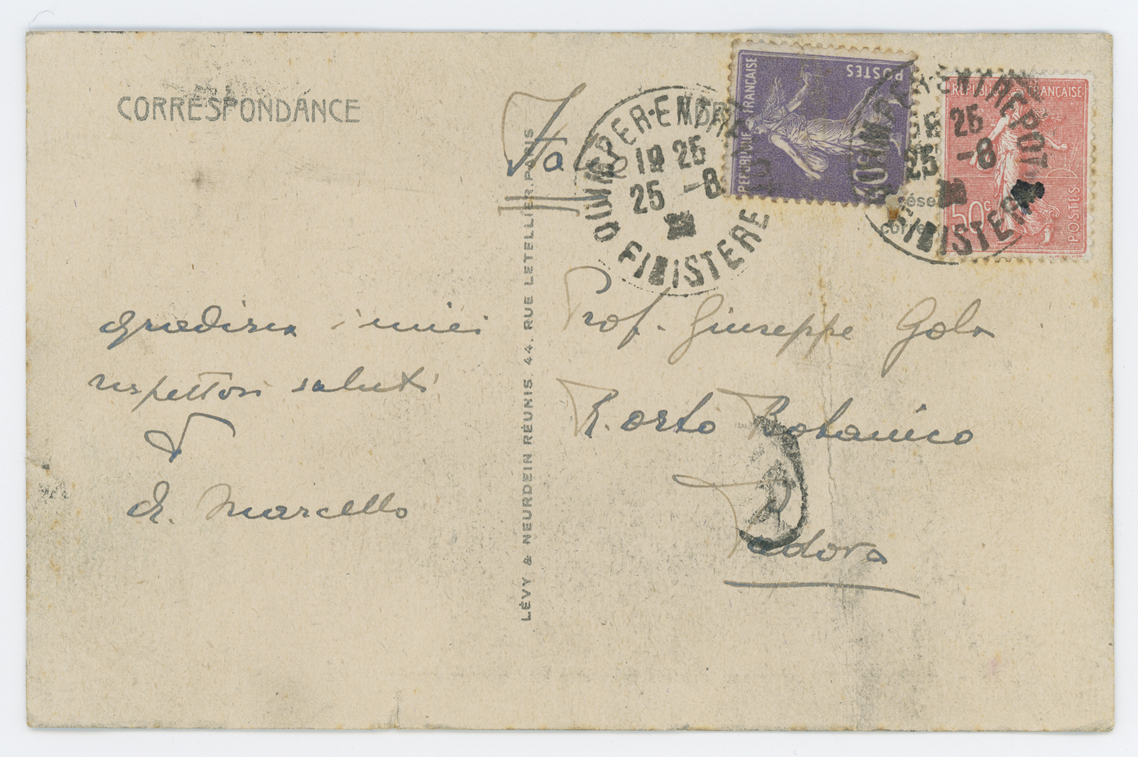 CORRESPONDANCE
QUIMPER-ENTREPOT
19 25
25 -8
FINISTERE
REPUBLIQUE FRANÇAISE
POSTES
QUIMPER-ENTREPOT
25
25 -8
FINISTERE
FRANÇAISE
50c
POSTES
gradisca i miei
rispettosi saluti
A. Marcello
LÉVY & NEURDEIN RÉUNIS. 44. RUE LETELLIER, PARIS
Prof. Giuseppe Gola
R. Orto Botanico
Padova